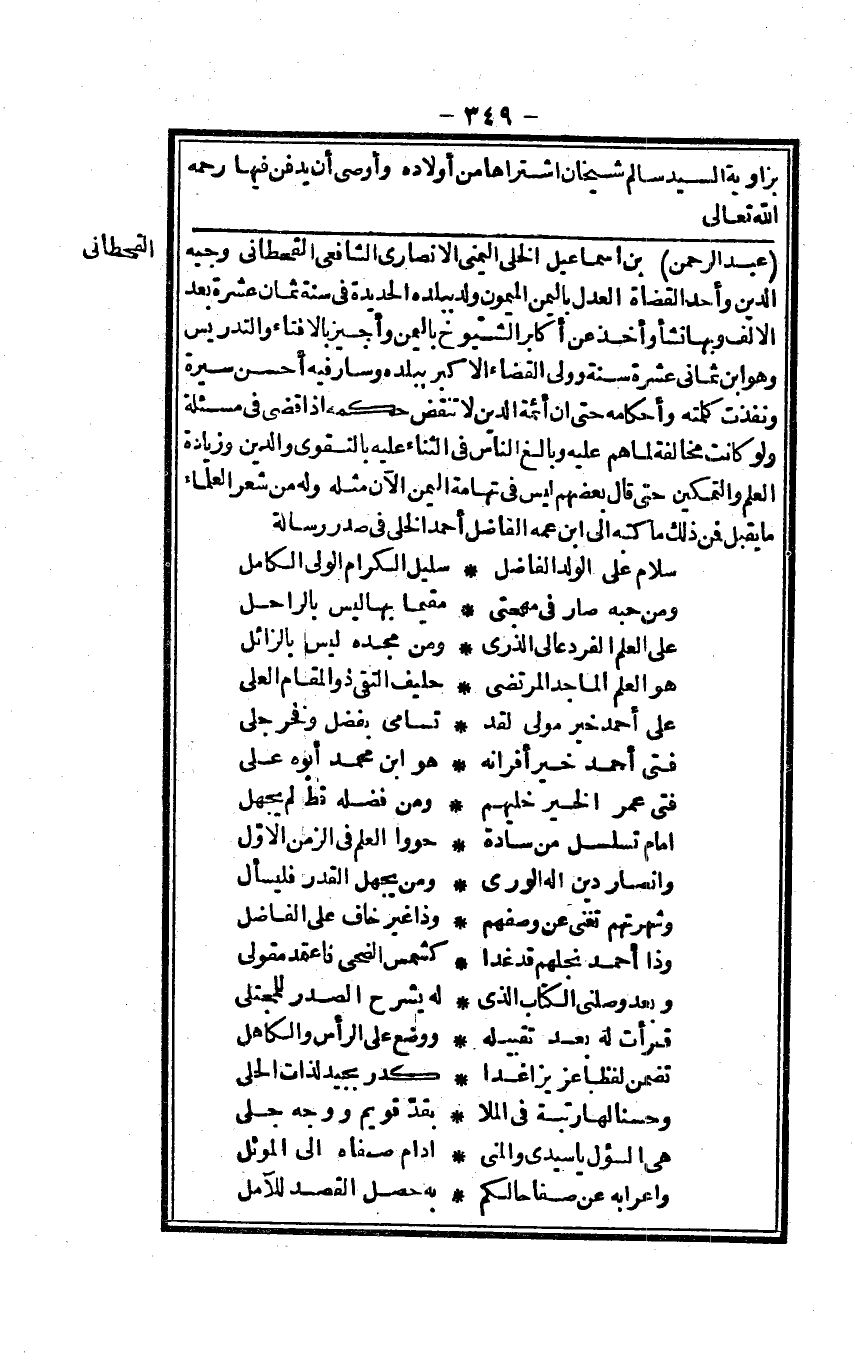 - ٣٤٩ -
بزاوية السيد سالم شيخان اشتراها من أولاده وأوصى أن يدفن فيها رحمه
الله تعالى
القحطانى
(عبد الرحمن) بن اسماعيل الخلى اليمنى الانصارى الشافعى القحطانى وجيه
الدين وأحد القضاة العدل باليمن الميمون ولد ببلده الحديدة فى سنة ثمان عشرة بعد
الالف وبها نشأ وأخذ عن أكابر الشيوخ باليمن وأجيز بالافتاء والتدريس
وهو ابن ثمانى عشرة سنة وولى القضاء الاكبر ببلده وسار فيه أحسن سيرة
ونفذت كلمته وأحكامه حتى ان أئمة الدين لا تنقض حكمه اذا قضى فى مسئلة
ولو كانت مخالفة لما هم عليه وبالغ الناس فى الثناء عليه بالتقوى والدين وزيادة
العلم والتمكين حتى قال بعضهم ليس فى تهامة اليمن الآن مثله وله من شعر العلماء
ما يقبل فمن ذلك ما كتبه الى ابن عمه الفاضل أحمد الخلى فى صدر رسالة
سلام على الولد الفاضل * سليل الكرام الولى الكامل
ومن حبه صار فى مهجتى * مقيما بها ليس بالراحل
على العلم الفرد عالى الذرى * ومن مجده ليس بالزائل
هو العلم الماجد المرتضى * حليف التقى ذو المقام العلى
على أحمد خير مولى لقد * تسامى بفضل وفخر جلى
فتى أحمد خير أقرانه * هو ابن محمد أبوه على
فتى عمر الخير خليهم * ومن فضله قط لم يجهل
امام تسلسل من سادة * حووا العلم فى الزمن الاوّل
وانصار دين اله الورى * ومن يجهل القدر فليسأل
وشهرتهم تغنى عن وصفهم * وذا غير خاف على الفاضل
وذا أحمد نجلهم قد غدا * كشمس الضحى فاعقد مقولى
وبعد وصلنى الكتاب الذى * له يشرح الصدر للمجتلى
قرأت له بعد تقبيله * ووضع على الرأس والكاهل
تضمن لفظا عزيزا غدا * كدر بجيد لذات الحلى
وحسنا لها رتبة فى الملا * بقدّ قويم ووجه جلى
هى السؤل يا سيدى والمنى * ادام صفاه الى الموئل
واعرابه عن صفا حالكم * به حصل القصد للآمل